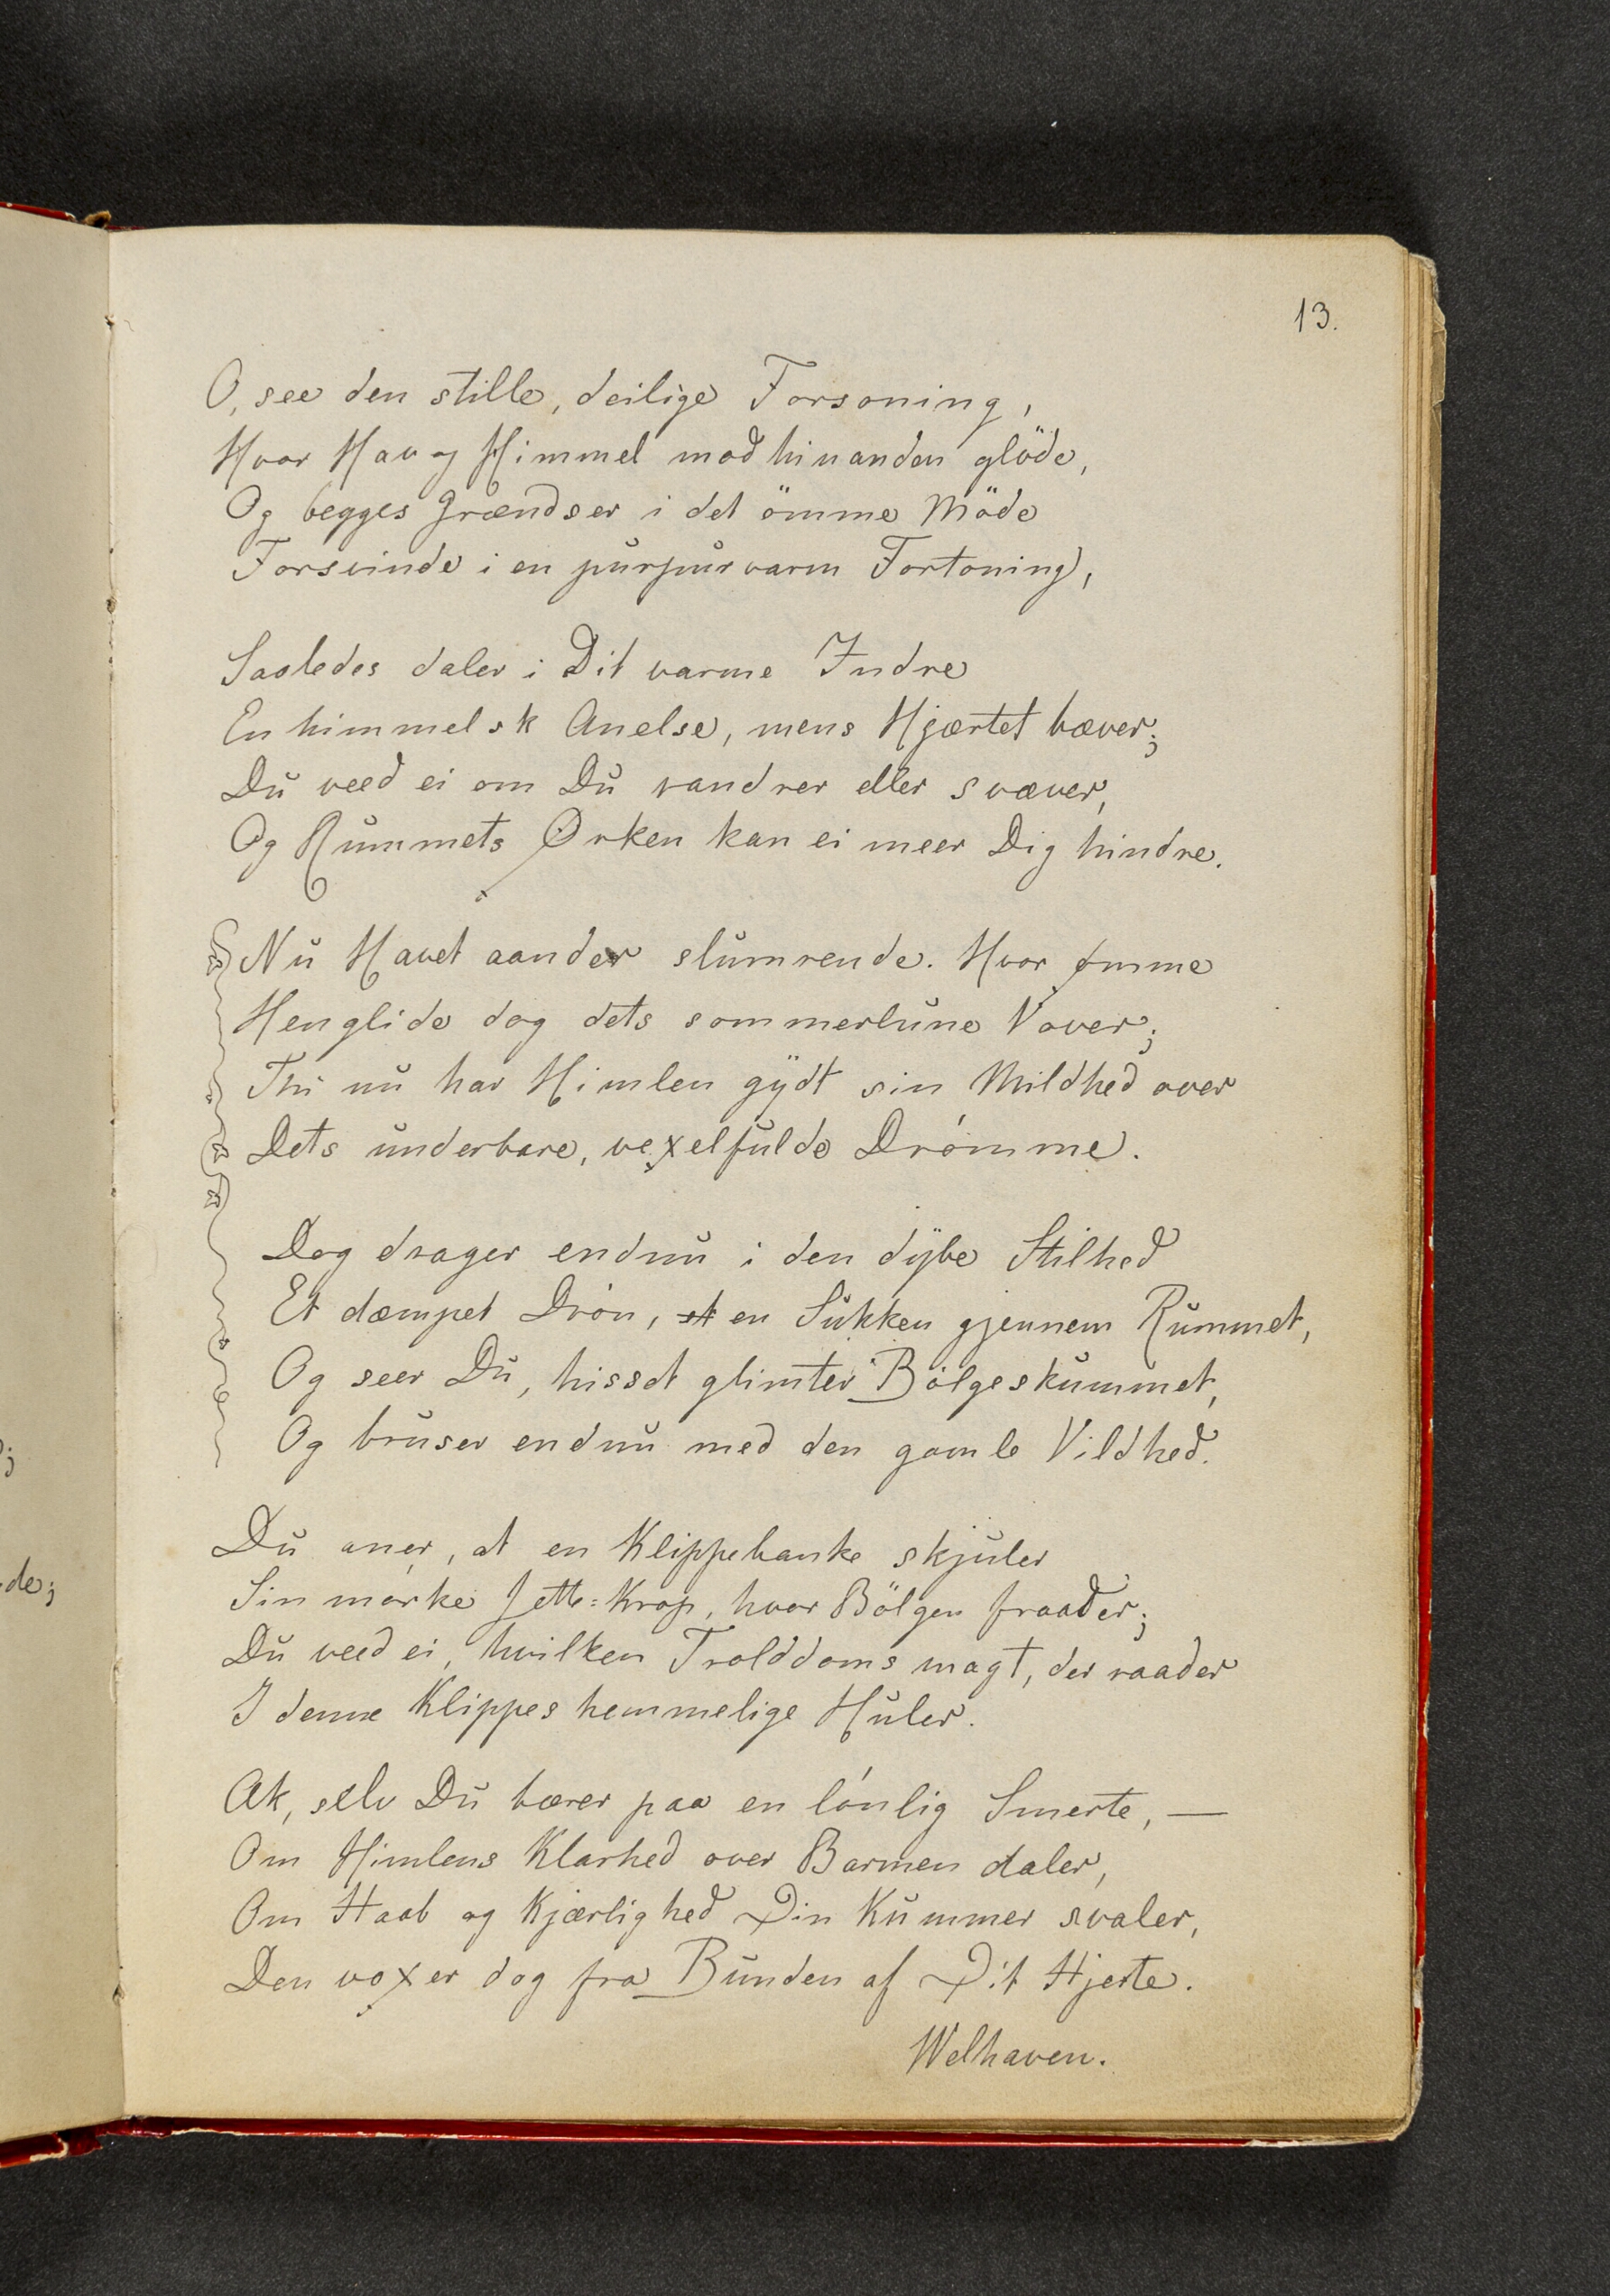 13.
O, see den stille, deilige Forsoning,
Hvor Hav og Himmel mod hinanden glöde,
Og begges Grændser i det ömme Möde
Forsvinde i en purpurvarm Fortoning,
Saaledes daler i Dit varme Indre
En himmelsk Anelse, mens Hjærtet bæver;
Du veed ei om Du vandrer eller svæver,
Og Rummets Ørken kan ei meer Dig hindre.
Nu Havet aander slumrende. Hvor ømme
Henglide dog dets sommerlune Vover;
Thi nu har Himlen gydt sin Mildhed over
Dets underbare, vexelfulde Drömme.
Dog drager endnu i den dybe Stilhed
Et dæmpet Drön, et en Sukken gjennem Rummet,
Og seer Du, hisset glimter Bölgeskummet,
Og bruser endnu med den gamle Vildhed.
Du aner, at en Klippebanke skjuler
Sin mörke Jette-Krop, hvor Bölgen fraader;
Du veed ei, hvilken Trolddoms magt, der raader
I denne Klippes hemmelige Huler.
Ak, selv Du bærer paa en lönlig Smerte, —
Om Himlens Klarhed over Barmen daler,
Om Haab og Kjærlighed Din Kummer svaler,
Den voxer dog fra Bunden af Dit Hjerte.
Welhaven.
;
de;